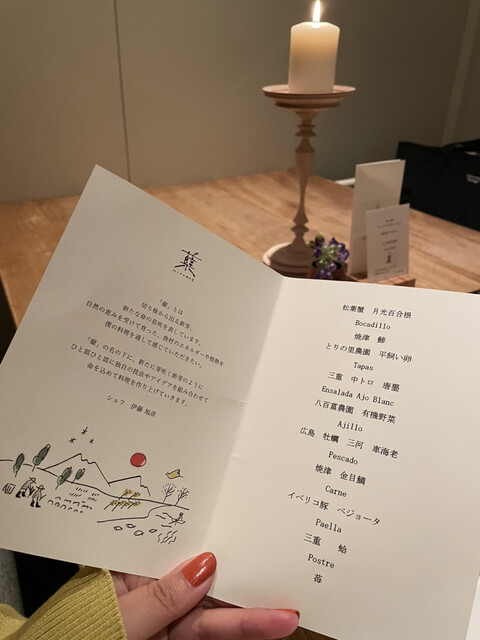 「蘖」とは
切り株から出る新芽、
新たな命の息吹を表しています。
自然の恵みを受けて育った、食材のエネルギーや情熱を
僕の料理を通して感じていただきたい。
「蘖」の名の下に、新たに芽吹く新芽のように
ひと皿ひと皿に独自の技法やアイデアを組み合わせて
命を込めて料理を作り上げていきます。
松葉蟹　月光百合根
Bocadillo
焼津　鰆
とりの里農園　平飼い卵
Tapas
三重　中トロ　唐墨
Ensalada Ajo Blanc
八百富農園　有機野菜
Ajillo
広島　牡蠣　三河　車海老
Pescado
焼津　金目鯛
Carne
イベリコ豚　ベジョータ
Paella
三重　蛤
Postre
苺